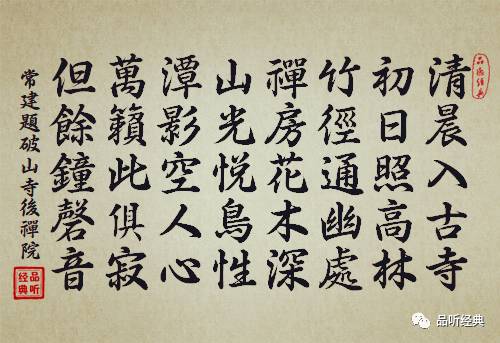 清晨入古寺
初日照高林
竹徑通幽處
禪房花木深
山光悅鳥性
潭影空人心
萬籟此俱寂
但餘鐘磬音
常建題破山寺後禪院
品听经典
品听经典
品听经典